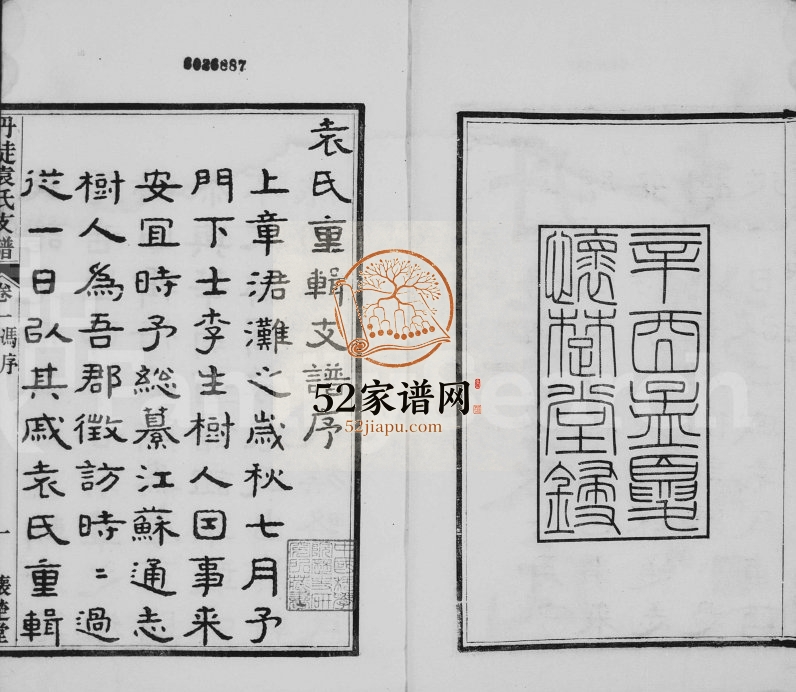 6026887
辛酉孟夏
懷楚堂鋟
袁氏重輯支譜序
上章涒灘之歲秋七月予
門下士李生樹人因事来
安宜時予總纂江蘇通志
樹人為吾郡徵訪時〻過
從一日㠯其戚袁氏重輯
丹徒袁氏支譜 卷一 馮序 一 懷楚堂
52家谱网
52jiapu.com